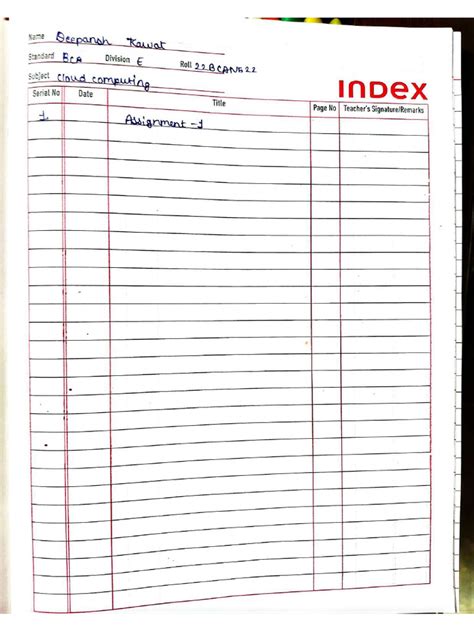 Name Deepansh Rawat
Standard BCA Division E Roll 22BCAN522
Subject Cloud computing
INDEX
Serial No Date Title Page No Teacher's Signature/Remarks
1. Assignment -1